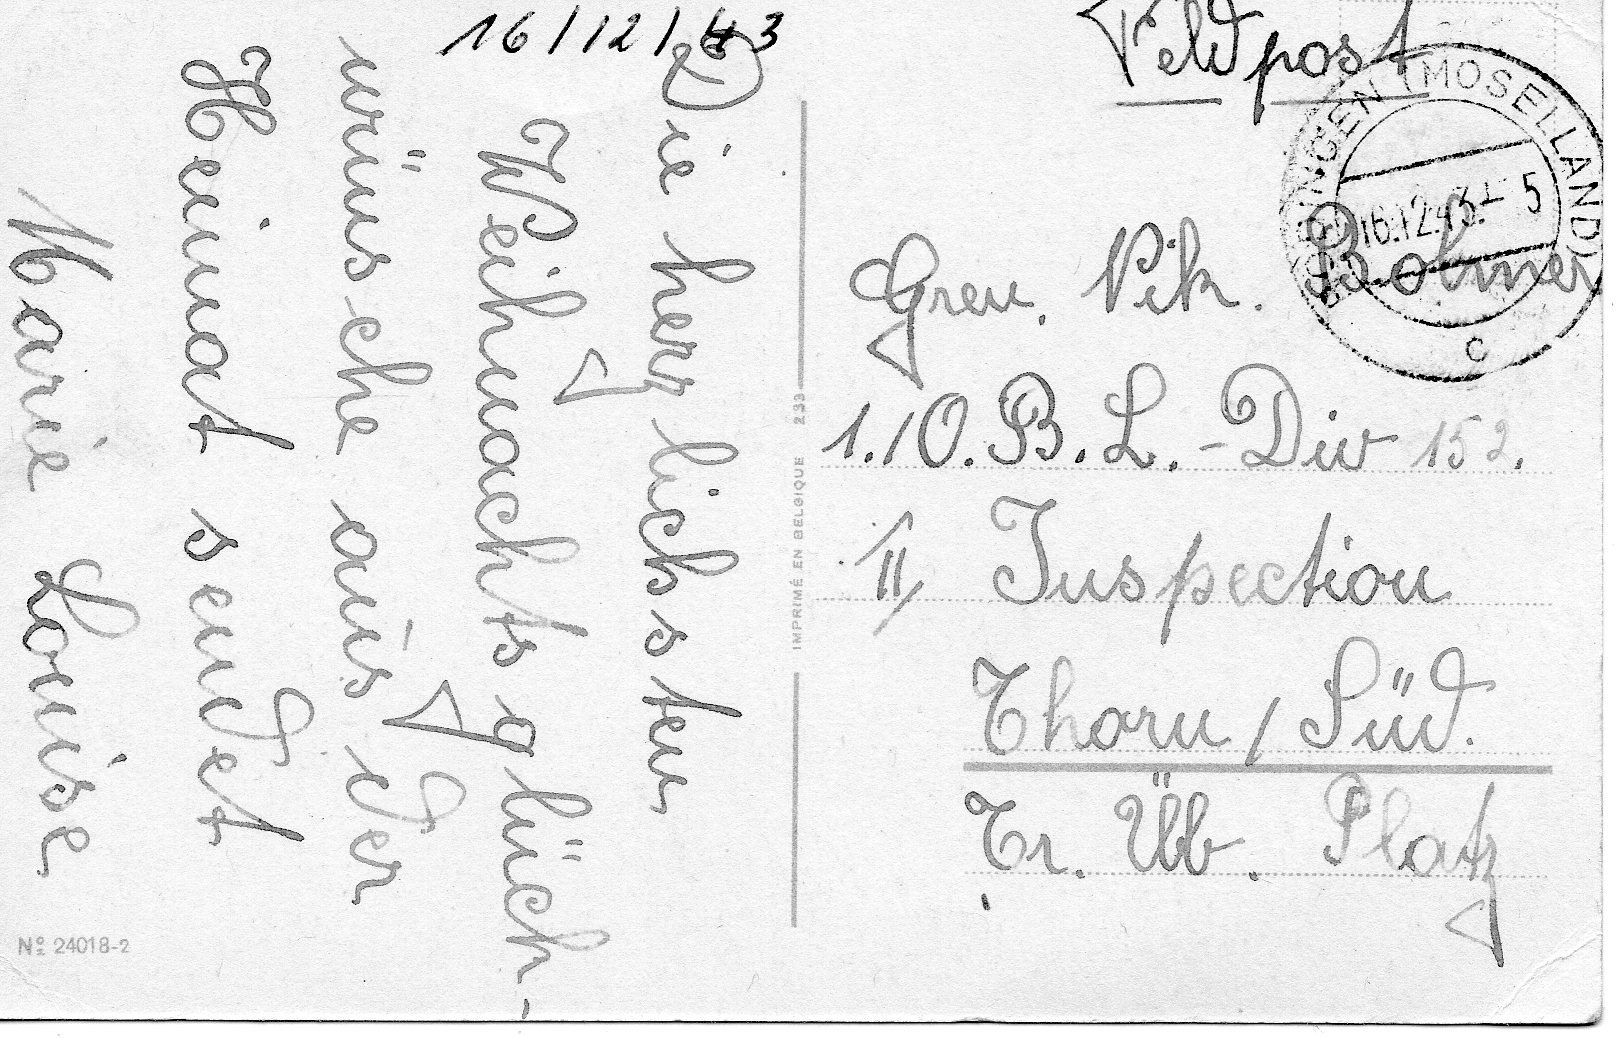 16/12/43
Die herzlichsten
Weihnachtsglück-
wünsche aus der
Heimat sendet
Marie Louise
Nº 24018-2
IMPRIMÉ EN BELGIQUE 233
Feldpost
(MOSELLAND)
16.12.43.-5
c
Gren. Vik.
1./O.B.L.-Div 152.
II Inspection
Thorn / Süd.
Tr. Üb. Platz